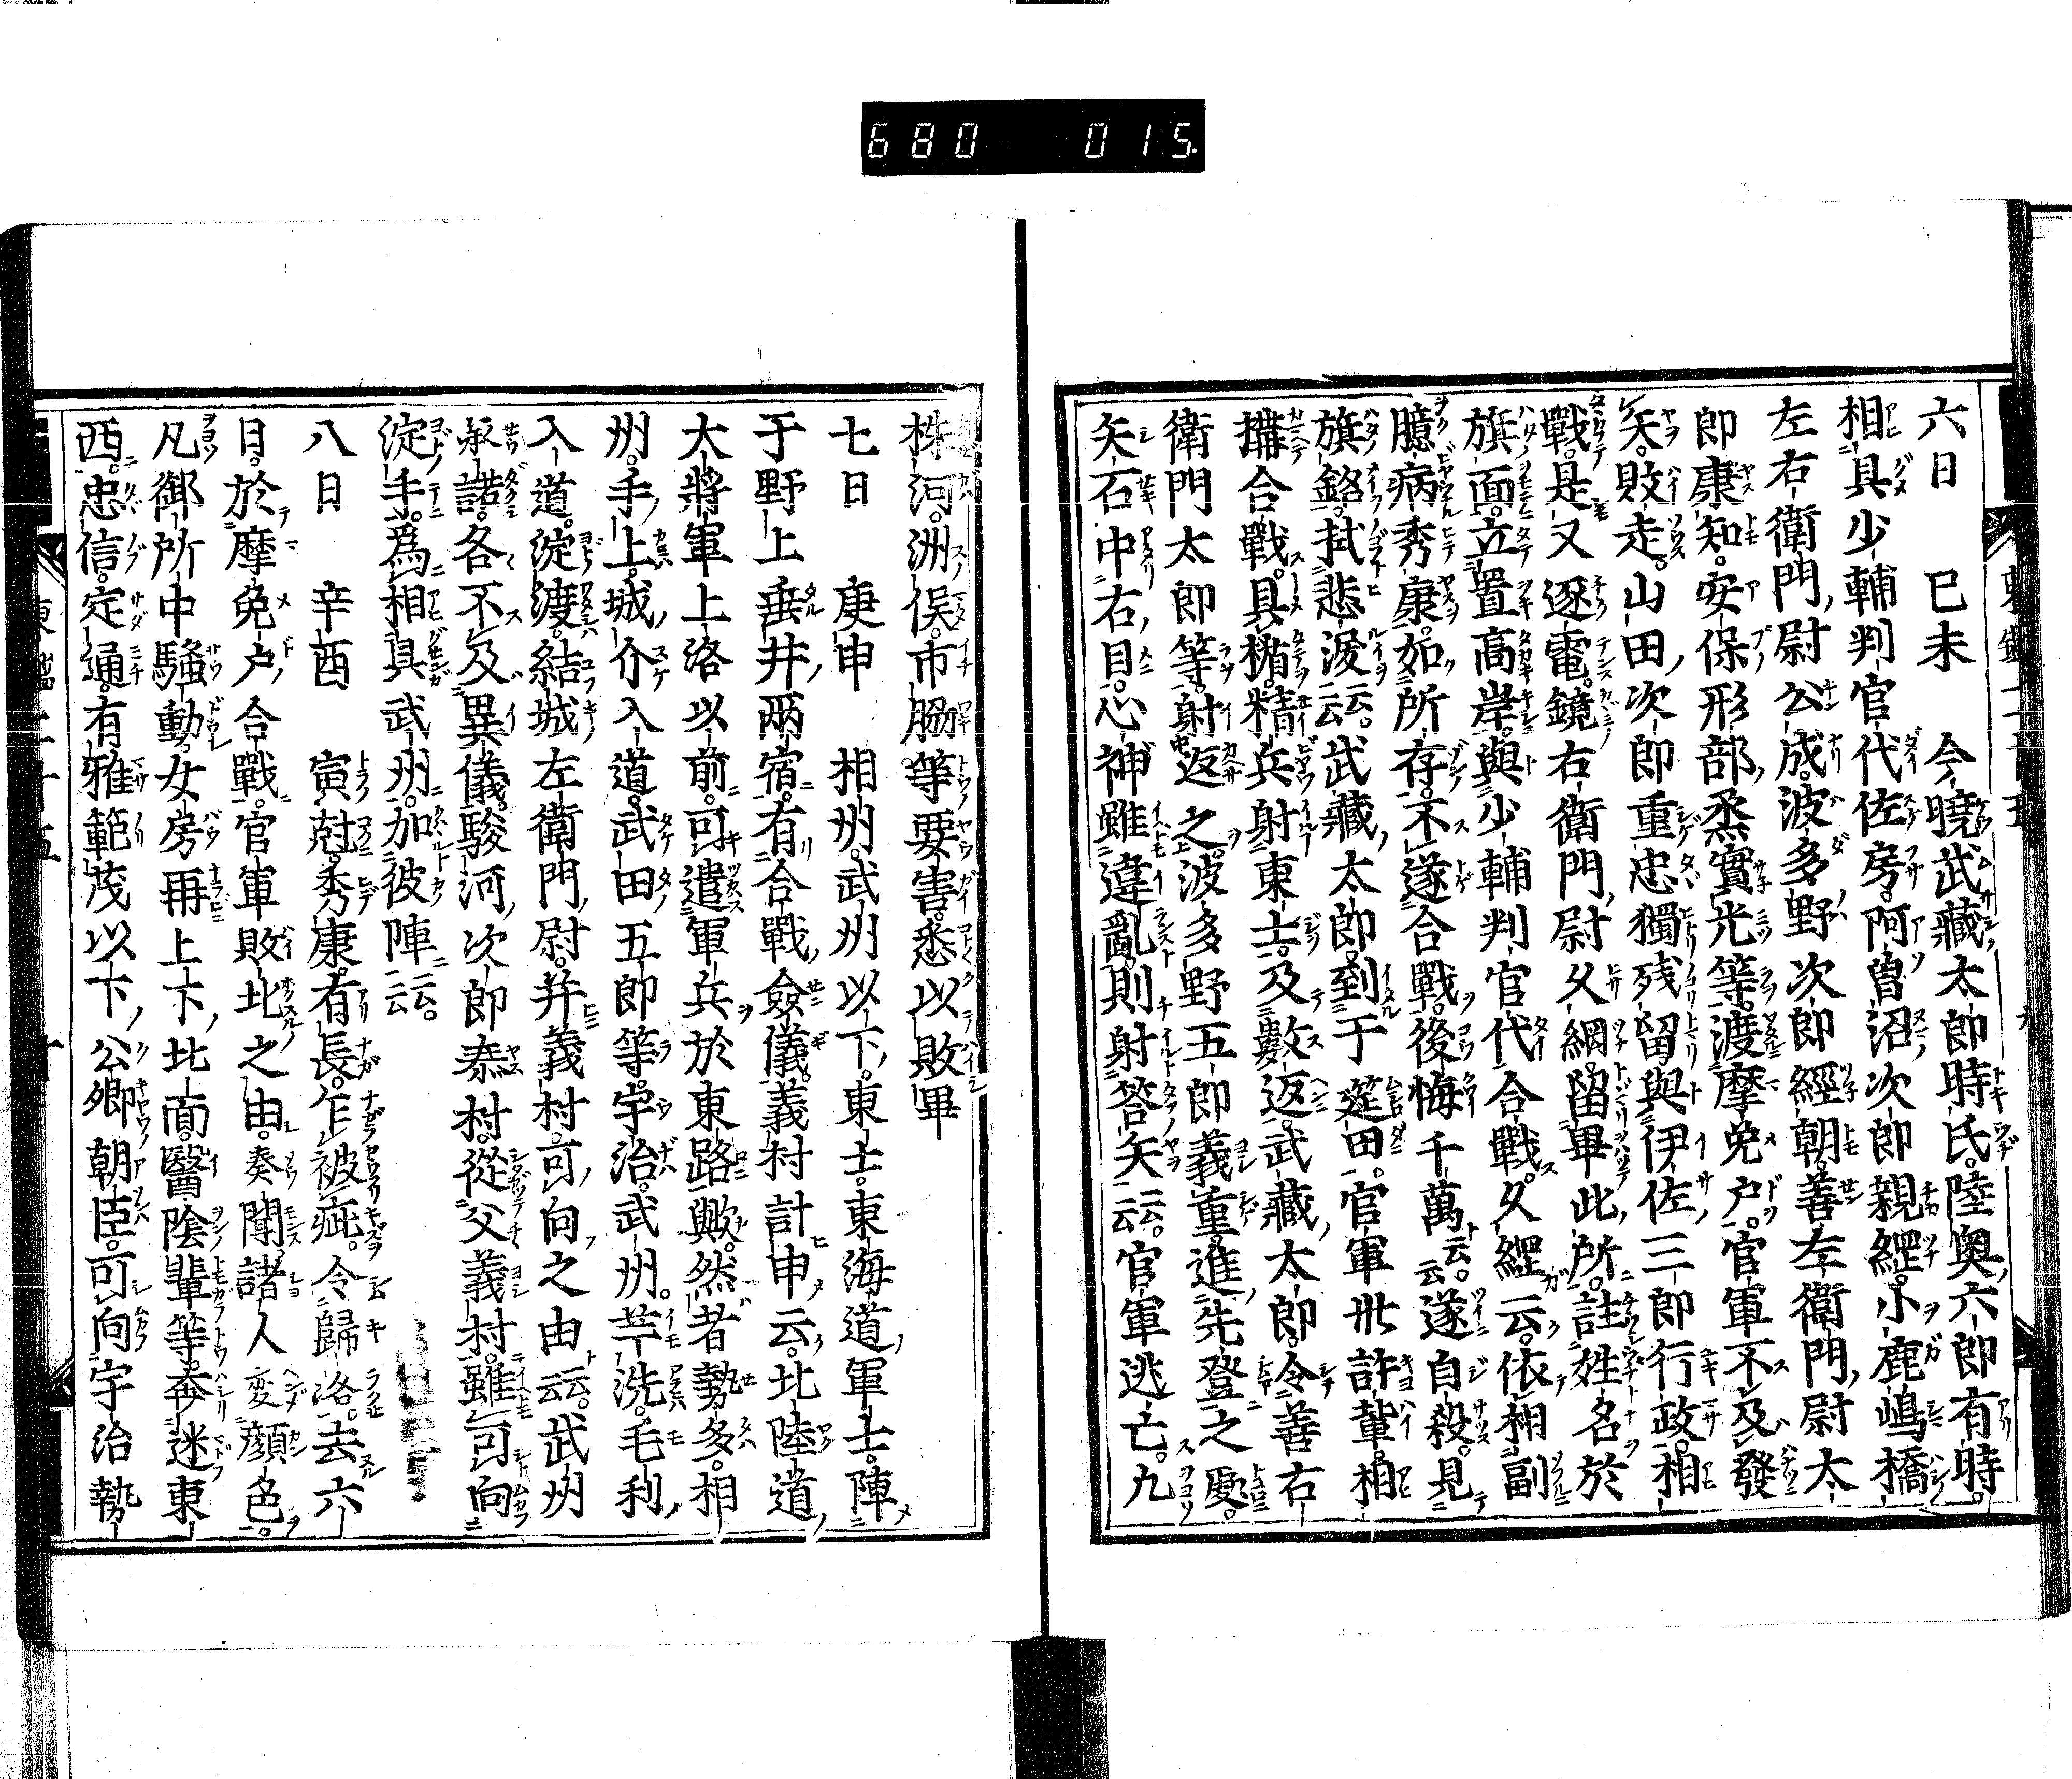 680 015
六日 己未 今曉武藏太郎時氏陸奥六郎有時
相具少輔判官代佐房阿曽沼次郎親經小鹿嶋橘
左右衛門尉公成波多野次郎經朝善左衛門尉太
郎康知安保形部丞實光等渡摩免戸官軍不及發
矢敗走山田次郎重忠獨残留與伊佐三郎行政相
戰是又逐電鏡右衛門尉久綱留畢此所註姓名於
旗面立置高岸與少輔判官代合戰久經云依相副
臆病秀康如所存不遂合戰後悔千萬云云遂自殺見
旗銘拭悲涙云云武藏太郎到于莚田官軍卅許輩相
搆合戰具楯精兵射東士及數返武藏太郎令善右
衛門太郎等射返之波多野五郎義重進先登之處
矢石中右目心神雖違亂則射答矢云云官軍逃亡凡
株河洲俣市脇等要害悉以敗畢
七日 庚申 相州武州以下東士東海道軍士陣
于野上垂井兩宿有合戰僉儀義村計申云北陸道
大將軍上洛以前可遣軍兵於東路歟然者勢多相
州手上城介入道武田五郎等宇治武州芋洗毛利
入道淀渡結城左衛門尉并義村可向之由云云武州
承諾各不及異儀駿河次郎泰村從父義村雖可向
淀手爲相具武州加彼陣云云
八日 辛酉 寅尅秀康有長乍被疵令歸洛去六
日於摩免戸合戰官軍敗北之由奏聞諸人変顔色
凡御所中騒動女房再上下北面醫陰輩等奔迷東
西忠信定通有雅範茂以下公卿朝臣可向宇治勢